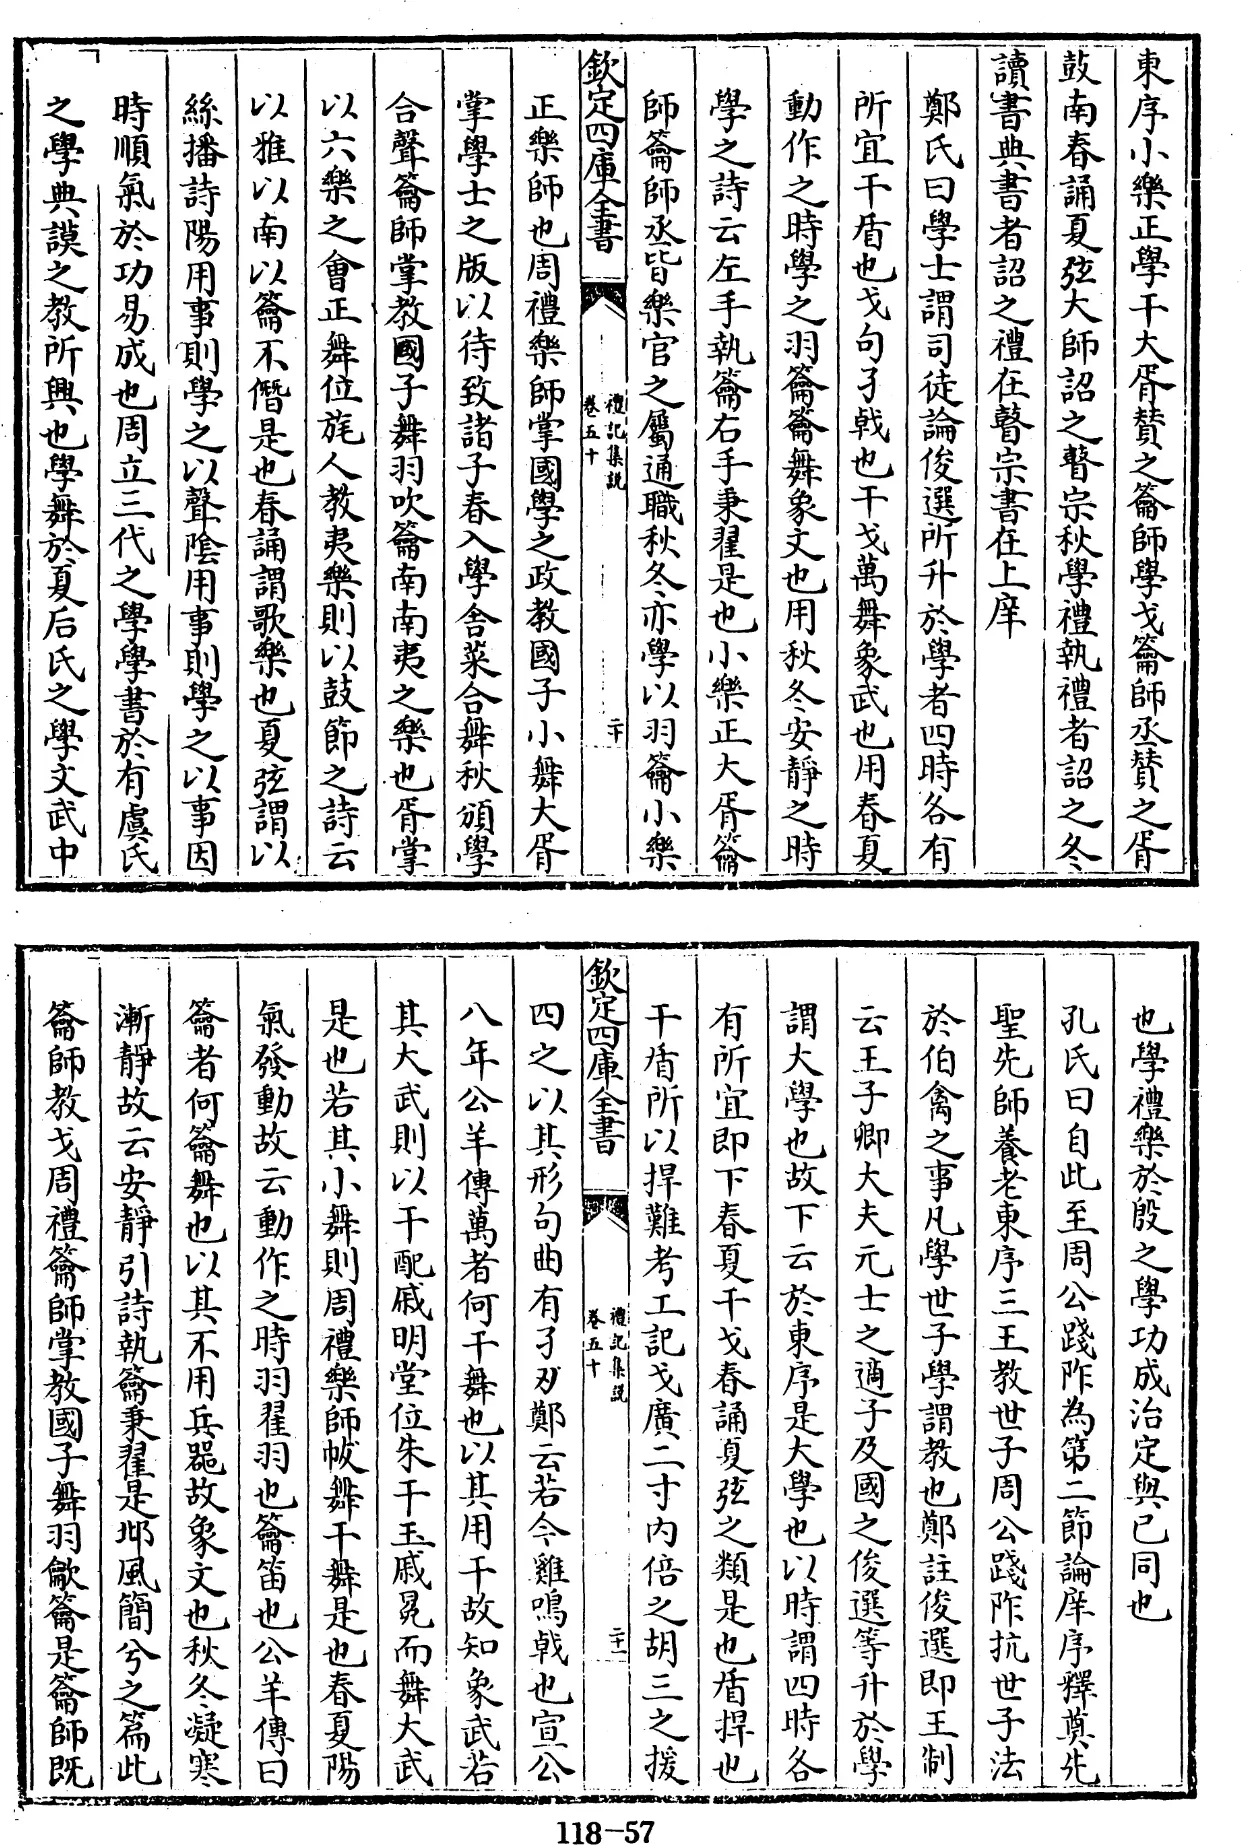 東序小樂正學干大胥贊之籥師學戈籥師丞贊之胥
鼓南春誦夏弦大師詔之瞽宗秋學禮執禮者詔之冬
讀書典書者詔之禮在瞽宗書在上庠
鄭氏曰學士謂司徒論俊選所升於學者四時各有
所宜干盾也戈句孑戟也干戈萬舞象武也用春夏
動作之時學之羽籥籥舞象文也用秋冬安靜之時
學之詩云左手執籥右手秉翟是也小樂正大胥籥
師籥師丞皆樂官之屬通職秋冬亦學以羽籥小樂
欽定四庫全書
禮記集說
卷五十
二十
正樂師也周禮樂師掌國學之政教國子小舞大胥
掌學士之版以待致諸子春入學舍菜合舞秋頒學
合聲籥師掌教國子舞羽吹籥南南夷之樂也胥掌
以六樂之會正舞位旄人教夷樂則以鼓節之詩云
以雅以南以籥不僭是也春誦謂歌樂也夏弦謂以
絲播詩陽用事則學之以聲陰用事則學之以事因
時順氣於功易成也周立三代之學學書於有虞氏
之學典謨之教所興也學舞於夏后氏之學文武中
也學禮樂於殷之學功成治定與己同也
孔氏曰自此至周公踐阼為第二節論庠序釋奠先
聖先師養老東序三王教世子周公踐阼抗世子法
於伯禽之事凡學世子學謂教也鄭註俊選即王制
云王子卿大夫元士之適子及國之俊選等升於學
謂大學也故下云於東序是大學也以時謂四時各
有所宜即下春夏干戈春誦夏弦之類是也盾捍也
干盾所以捍難考工記戈廣二寸內倍之胡三之援
欽定四庫全書
禮記集說
卷五十
二十一
四之以其形句曲有孑刃鄭云若今雞鳴戟也宣公
八年公羊傳萬者何干舞也以其用干故知象武若
其大武則以干配戚明堂位朱干玉戚冕而舞大武
是也若其小舞則周禮樂師帗舞干舞是也春夏陽
氣發動故云動作之時羽翟羽也籥笛也公羊傳曰
籥者何籥舞也以其不用兵器故象文也秋冬凝寒
漸靜故云安靜引詩執籥秉翟是邶風簡兮之篇此
籥師教戈周禮籥師掌教國子舞羽龡籥是籥師既
118-57